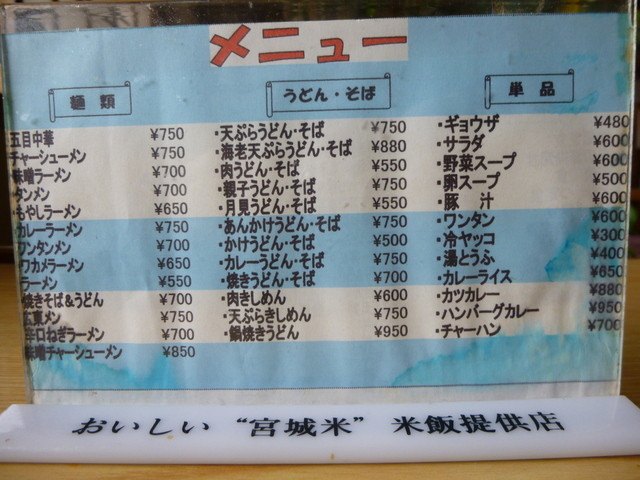 メニュー
麺類
五目中華 ¥750
チャーシューメン ¥750
味噌ラーメン ¥700
タンメン ¥700
・もやしラーメン ¥650
カレーラーメン ¥750
ワンタンメン ¥700
ワカメラーメン ¥650
ラーメン ¥550
焼きそば&うどん ¥700
広東メン ¥750
辛口ねぎラーメン ¥700
味噌チャーシューメン ¥850
うどん・そば
・天ぷらうどん・そば ¥750
・海老天ぷらうどん・そば ¥880
・肉うどん・そば ¥550
・親子うどん・そば ¥750
・月見うどん・そば ¥550
・あんかけうどん・そば ¥750
・かけうどん・そば ¥500
・カレーうどん・そば ¥750
・焼きうどん・そば ¥700
・肉きしめん ¥600
・天ぷらきしめん ¥750
・鍋焼きうどん ¥950
単品
・ギョウザ ¥480
・サラダ ¥600
・野菜スープ ¥600
・卵スープ ¥500
・豚 汁 ¥600
・ワンタン ¥600
・冷ヤッコ ¥300
・湯とうふ ¥400
・カレーライス ¥650
・カツカレー ¥880
・ハンバーグカレー ¥950
・チャーハン ¥700
おいしい “宮城米” 米飯提供店